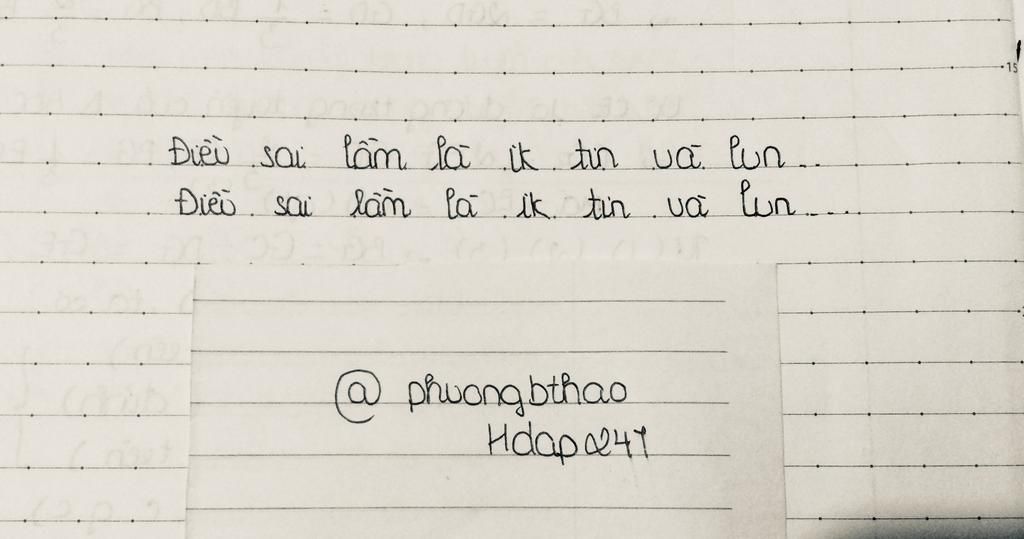 Điều sai lầm là ik tin và lun..
Điều sai lầm là ik tin và lun....
@ phuongbthao
Hdap247
15